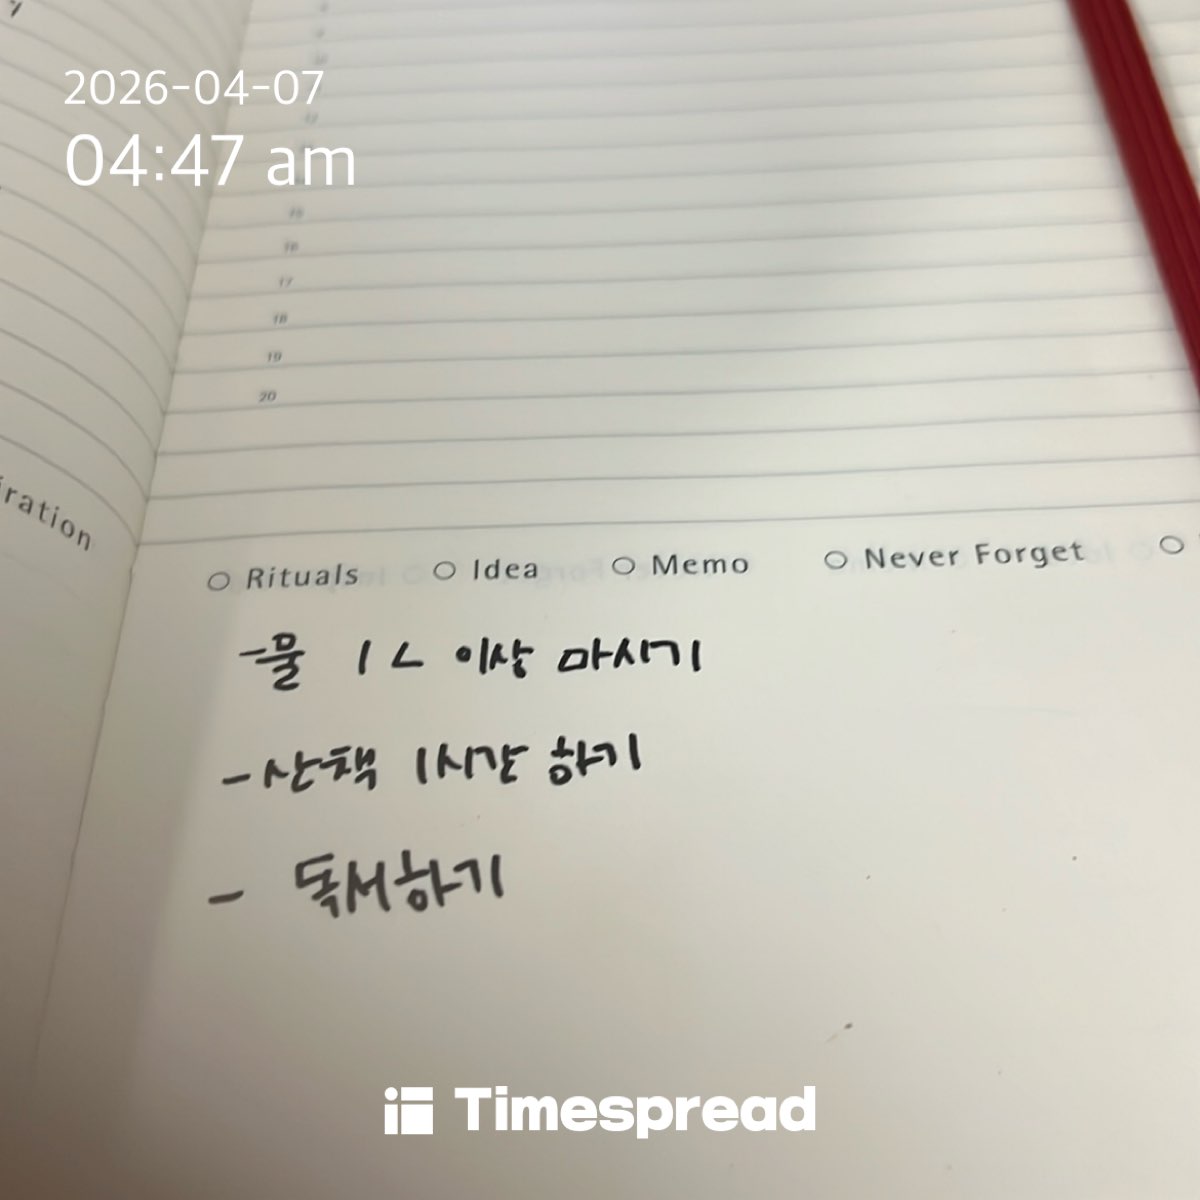 2026-04-07
04:47 am
15
16
17
18
19
20
iration
Rituals Idea Memo Never Forget
-물 1L 이상 마시기
-산책 1시간 하기
- 독서하기
Timespread